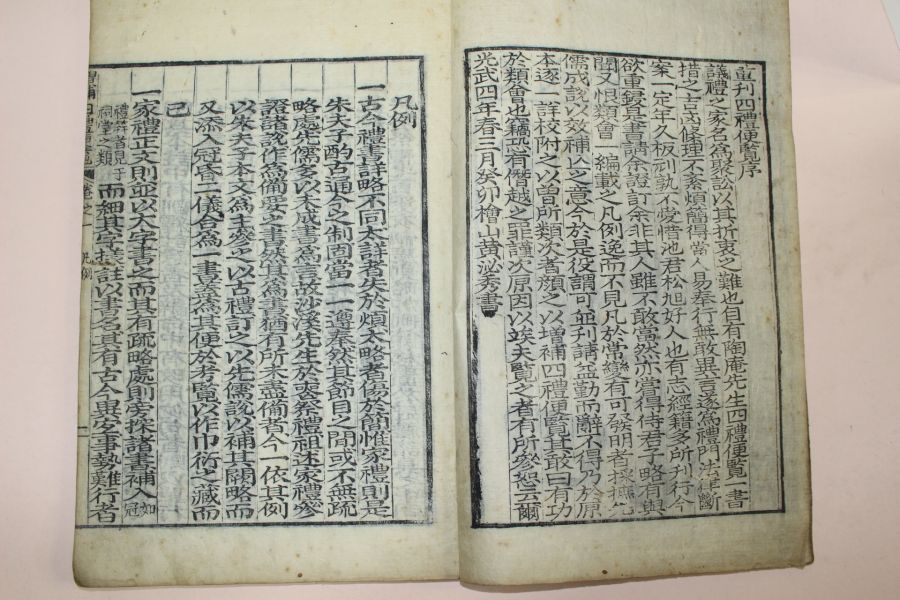 重刊四禮便覽序
議禮之家名爲聚訟以其折衷之難也自有陶庵先生四禮便覽一書
措之古或條理不紊煩簡得當 易奉行無敢異言遂爲禮門法律斷
案一定年久板刓孰不愛惜池君松旭好人也有志經籍多所刊行今
欲重鋟是書請余證訂余非其人雖不敢當然亦嘗得侍君子略有與
聞又恨類會一編載之凡例逸而不見凡於常變有可發明者採摭先
儒成說以效補 之意今於是役謂可並刊請益勤而辭不得乃於原
本逐一詳校附之以曾所類次者顏之以增補四禮便覽其敢曰有功
於類會也竊恐有僭越之罪謹次原因以竢夫覽之者有所參恕云爾
光武四年春三月癸卯檜山黃泌秀書
凡例
一古今禮書詳略不同太詳者失於煩太略者傷於簡惟家禮則是
朱夫子酌古通今之制固當一一遵奉然其節目之間或不無疏
略處先儒多以未成書爲言故沙溪先生於喪祭禮祖述家禮參
證諸說作爲備要之書然其爲書猶有所未盡備者今一依其例
以朱夫子本文爲主參之以古禮訂之以先儒說以補其闕略而
又添入冠昏二儀合爲一書蓋爲其便於考覽以作巾衍之藏而
已
一家禮正文則並以大字書之而其有疏略處則旁採諸書補入如冠
禮筓者見于祠堂之類而細其字 註以書名其有古今異宜事勢難行者
增補四禮便覽 卷之一 凡例